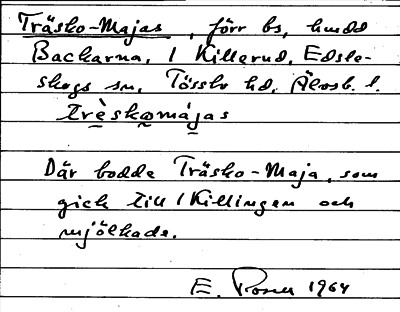 Träsko-Majas, förr bs, hmdd
Backarna, 1 Killerud, Edsle-
skogs sn, Tössbo hd, Älvsb. l.
trèskomájas
Där bodde Träsko-Maja, som
gick till 1 Killingen och
mjölkade.
E. 1964